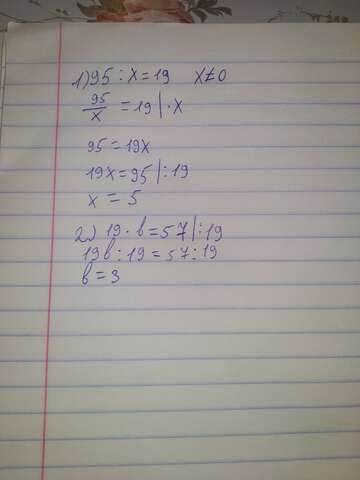 1) 95 : x = 19 x ≠ 0
95/x = 19 | · x
95 = 19x
19x = 95 | : 19
x = 5
2) 19 · b = 57 | : 19
19b : 19 = 57 : 19
b = 3